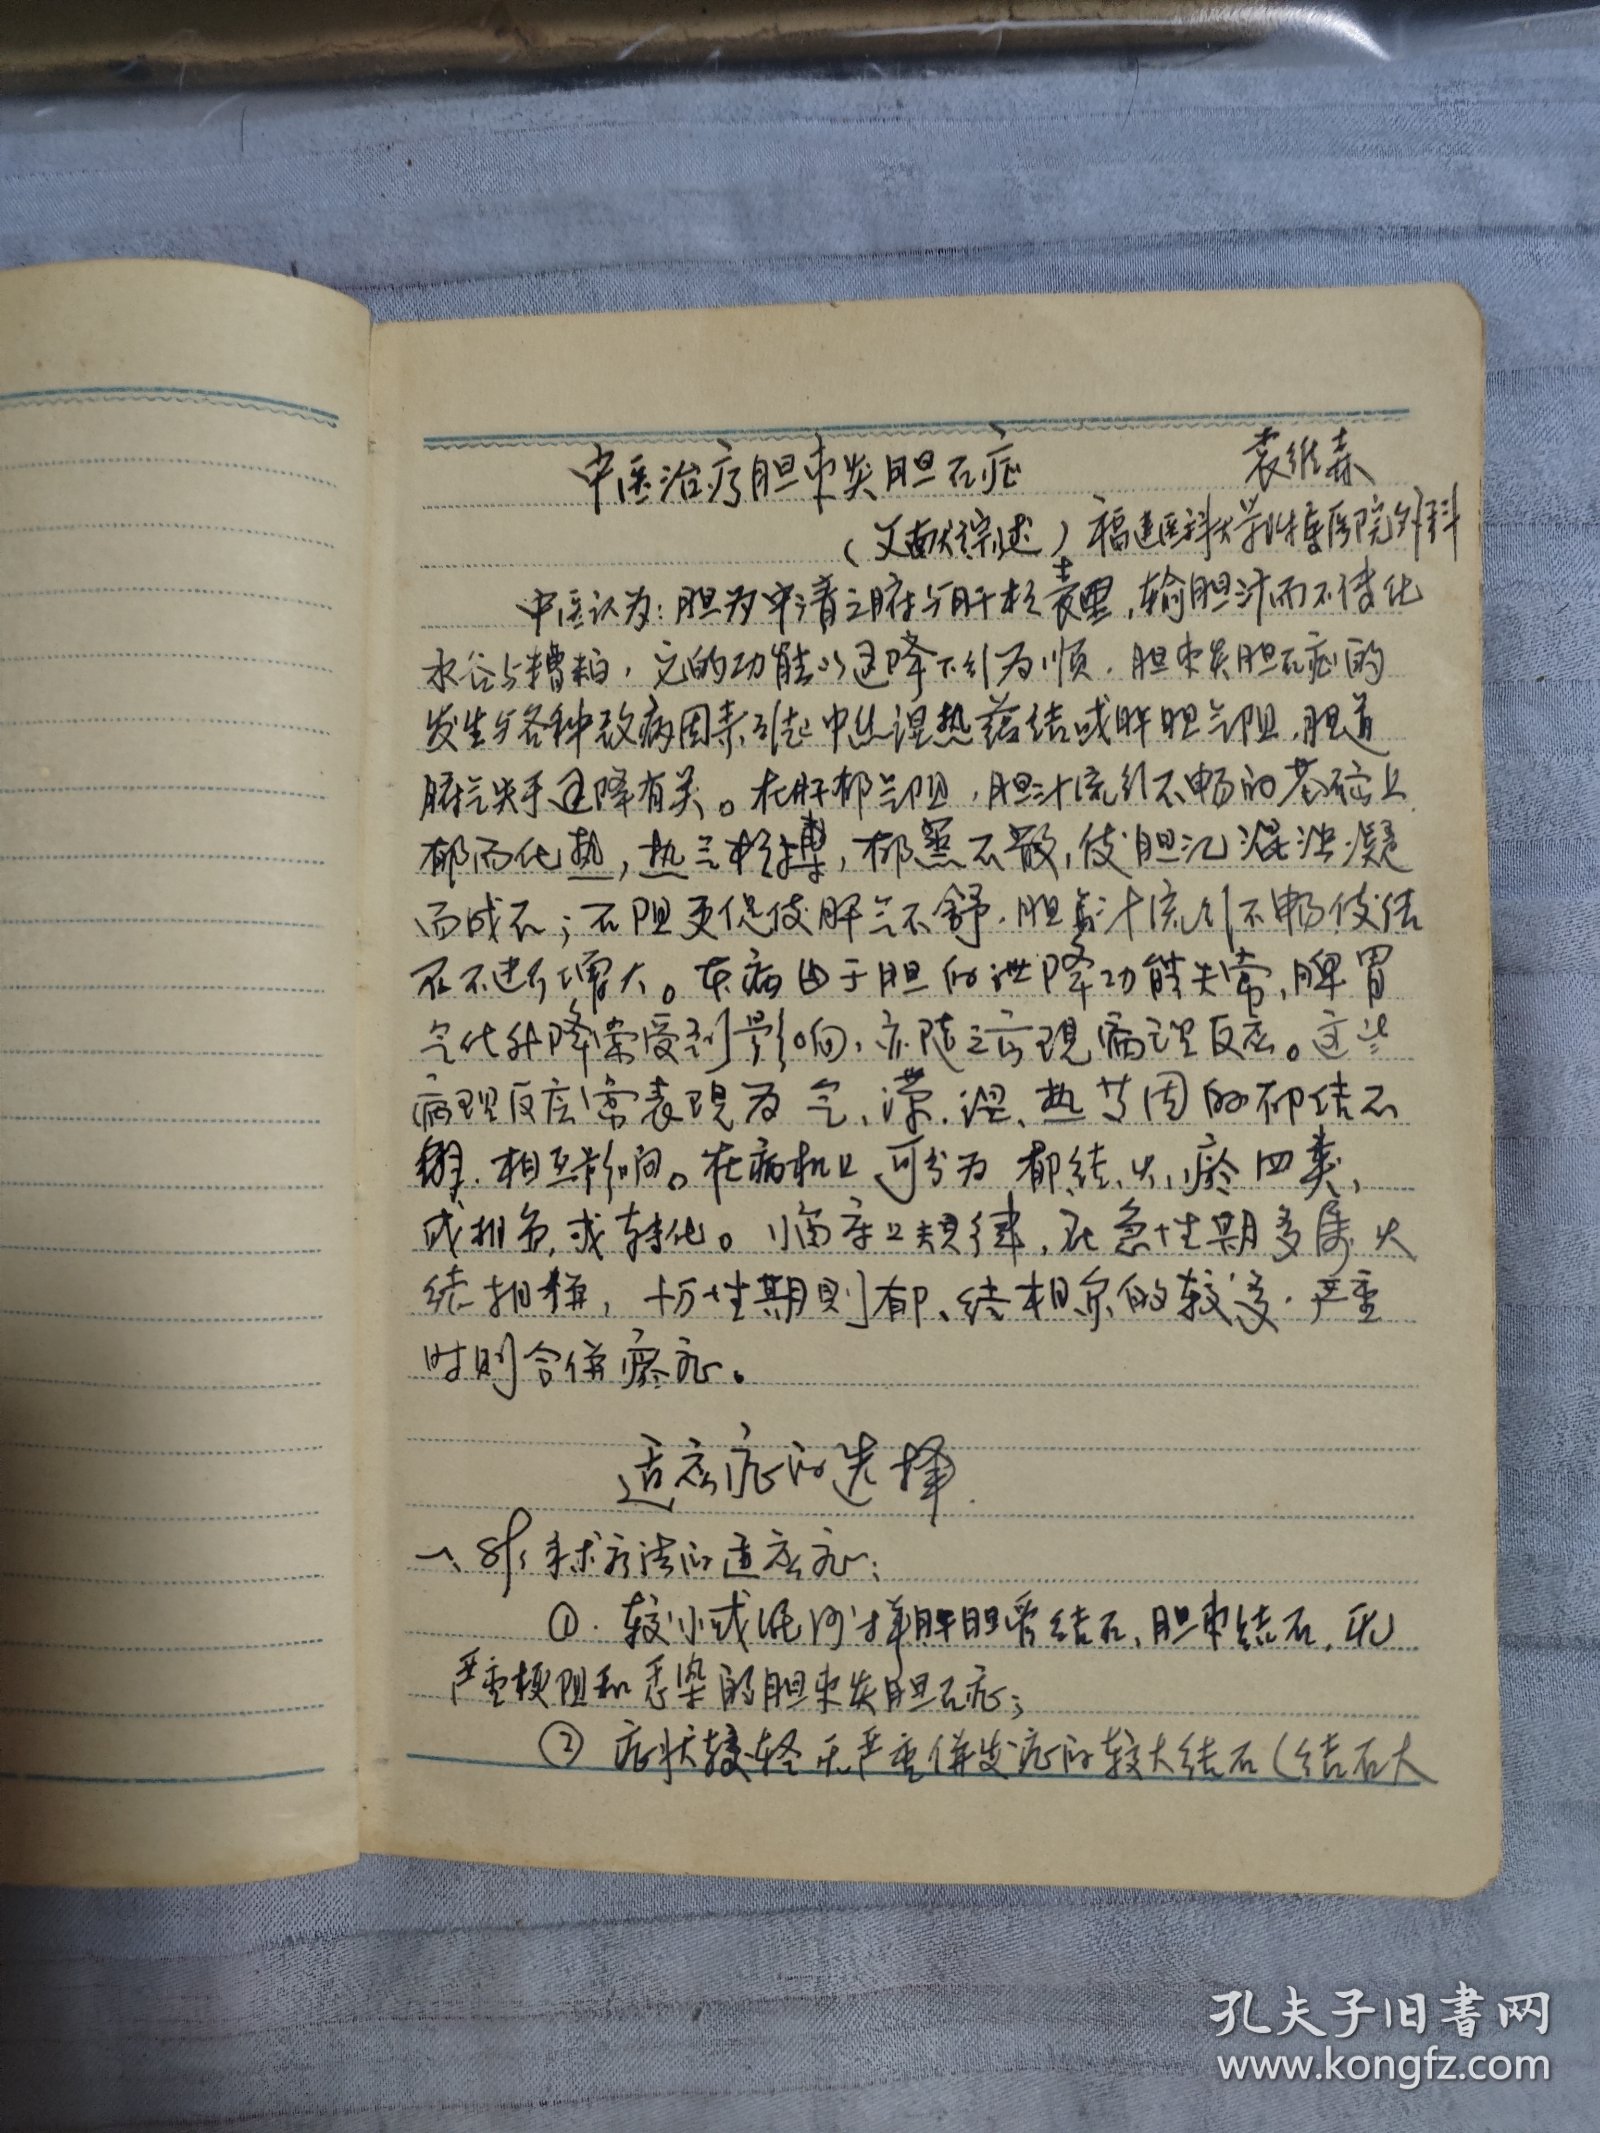 中医治疗胆束炎胆石症 袁维森
(文献综述) 福建医科大学附属医院外科
中医认为:胆为中清之府与肝相表里,输胆汁而不传化
水谷与糟粕,它的功能以通降下行为顺.胆束炎胆石症的
发生与各种致病因素引起中焦湿热蕴结或肝胆气阻,胆道
腑气失于通降有关。在肝郁气阻,胆汁流行不畅的基础上
郁而化热,热气相搏,郁蒸不散,使胆汁混浊凝
而成石;石阻更促使肝气不舒.胆汁流行不畅使结
石不断增大。本病由于胆的泄降功能失常,脾胃
气化升降常受到影响,亦随之出现病理反应。这些
病理反应常表现为气、湿、热 因的郁结不
相互影响。在病机上可分为郁、结、火、瘀四类,
或相兼,或转化。临床上规律,在急性期多属火
结 ,慢性期则郁、结相兼的较多.严重
时则合併瘀症。
适应症的选择
一、非手术疗法的适应症:
①.较小或泥沙样肝胆管结石、胆束结石,无
严重梗阻和感染的胆束炎胆石症;
②症状较轻无严重併发症的较大结石(结石大
孔夫子旧书网
www.kongfz.com